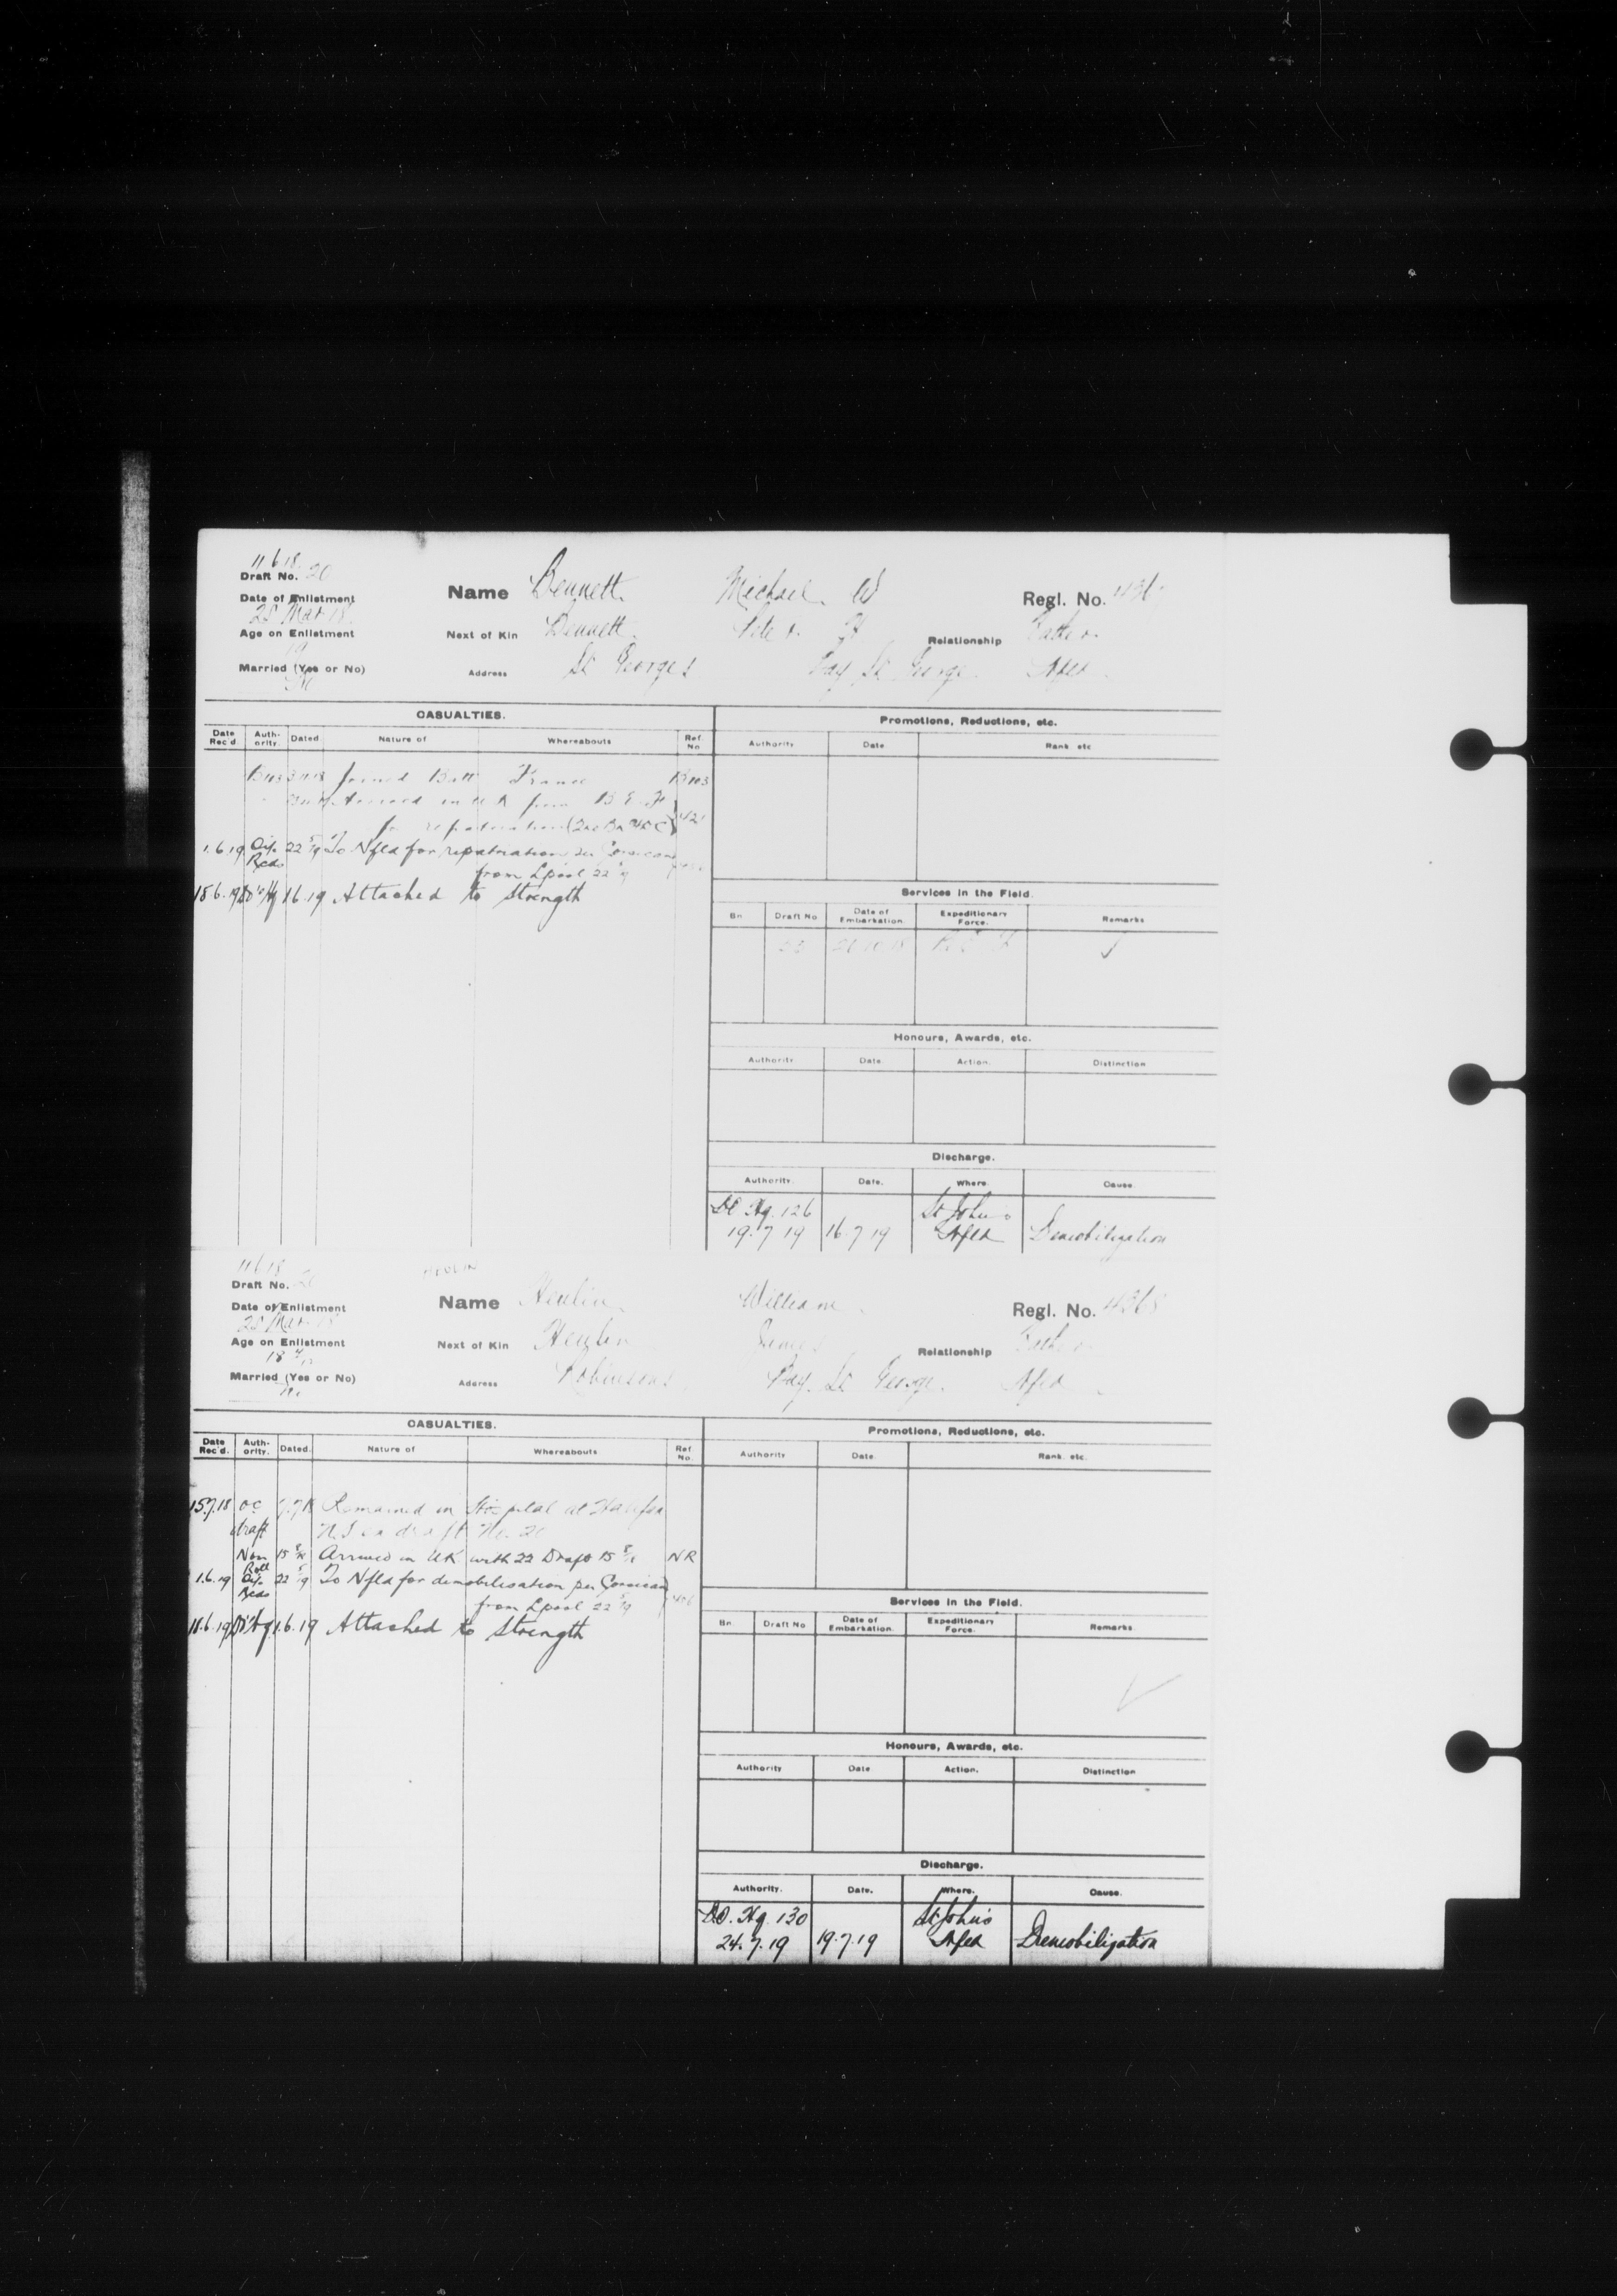 11 6 18
Draft No. 20
Name Bennett Michael W
Regl. No.
Date of Enlistment
28 Mar 18
Age on Enlistment
19
Next of Kin Bennett Peter
Relationship Father
Married (Yes or No)
No
Address St Georges Bay St George Nfld
CASUALTIES.
Date Rec'd Authority. Dated Nature of Whereabouts Ref. No
B103 Joined Batt France B103
Arrived in UK from B.E.F.
for repatriation
1.6.19 Rcds 22 5/19 To Nfld for repatriation per Corsican
from Lpool 22 5/19
1.6.19 Attached to Strength
Promotions, Reductions, etc.
Authority Date Rank etc
Services in the Field.
Bn Draft No Date of Embarkation. Expeditionary Force. Remarks
B E F
Honours, Awards, etc.
Authority Date. Action. Distinction
Discharge.
Authority. Date. Where. Cause
Hq. 126 St John's
19.7.19 16.7.19 Nfld Demobilization
11 6 18
Draft No. 20
Name Heulin William
Regl. No. 4368
Date of Enlistment
28 Mar 18
Age on Enlistment
18
Next of Kin Heulin James
Relationship Father
Married (Yes or No)
No
Address Robinsons Bay St George. Nfld
CASUALTIES.
Date Rec'd. Authority. Dated. Nature of Whereabouts Ref. No.
15.7.18 OC 7.7.18 Remained in Hospital at Halifax
draft N.S. ex draft No. 20
Nom 15 8/18 Arrived in UK with 22 Draft 15 8/18 NR
Roll
1.6.19 Rcds 22 5/19 To Nfld for demobilisation per Corsican
from Lpool 22 5/19
1.6.19 Attached to Strength
Promotions, Reductions, etc.
Authority Date. Rank. etc.
Services in the Field.
Bn. Draft No Date of Embarkation. Expeditionary Force. Remarks.
Honours, Awards, etc.
Authority Date Action. Distinction
Discharge.
Authority. Date. Where. Cause.
Hq. 130 St John's
24.7.19 19.7.19 Nfld Demobilization